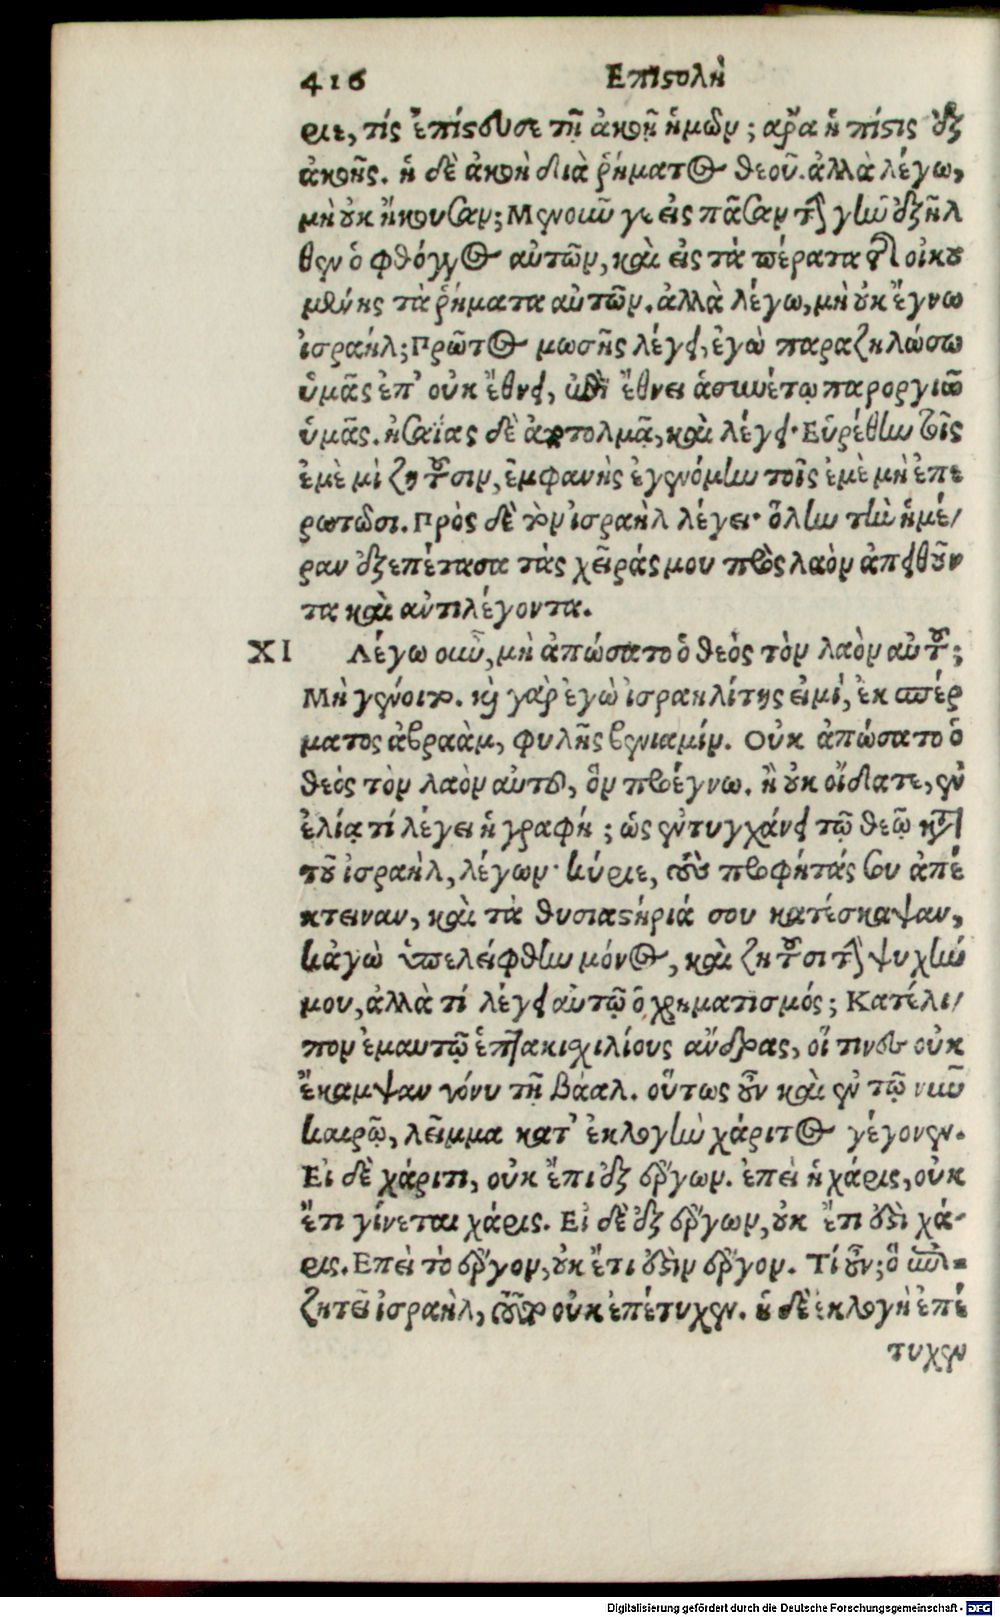 416 Επιϛολὴ
ριε, τίς ἐπίϛευσε τῇ ἀκοῇ ἡμῶν; αῤα ἡ πίϛις ἐξ
ἀκοῆς. ἡ δὲ ἀκοὴ διὰ ῥήματος θεοῦ. ἀλλὰ λέγω,
μὴ οὐκ ἤκουσαν; Μενοιῦ γε εἰς πᾶσαν τὴν γlω ἐξῆλ
θεν ὁ φθόγγος αὐτῶν, καὶ εἰς τὰ πέρατα τῆς οἰκου
μένης τὰ ῥήματα αὐτῶν. ἀλλὰ λέγω, μὴ οὐκ ἔγνω
ἰσραήλ; Πρῶτος μωσῆς λέγει, ἐγὼ παραζηλώσω
ὑμᾶς ἐπ' οὐκ ἔθνει, ἐπὶ ἔθνει ἀσυνέτῳ παροργιῶ
ὑμᾶς. ἠσαΐας δὲ ἀποτολμᾷ, καὶ λέγει· Εὑρέθην τοῖς
ἐμὲ μὶ ζητοῦσιν, ἐμφανὴς ἐγενόμην τοῖς ἐμὲ μὴ ἐπε
ρωτῶσι. Πρὸς δὲ τὸν ἰσραὴλ λέγει· ὅλην τὴν ἡμέ/
ραν ἐξεπέτασα τὰς χεῖράς μου πρὸς λαὸν ἀπειθοῦν
τα καὶ αὐτιλέγοντα.
XI Λέγω οιῦ, μὴ ἀπώσατο ὁ θεός τὸν λαὸν αὐτοῦ;
Μὴ γένοιτο. καὶ γαρ ἐγὼ ἰσραηλίτης εἰμί, ἐκ σπέρ
ματος ἀβραὰμ, φυλῆς βενιαμίν. Οὐκ ἀπώσατο ὁ
θεός τὸν λαὸν αὐτοῦ, ὃν προέγνω. ἢ οὐκ οἴδατε, ἐν
ἐλίᾳ τί λέγει ἡ γραφή; ὡς ἐντυγχάνει τῷ θεῷ κατὰ
τοῦ ἰσραὴλ, λέγων· κύριε, τοὺς προφήτάς σου ἀπέ
κτειναν, καὶ τὰ θυσιαϛήριά σου κατέσκαψαν,
κἀγὼ ὑπελείφθην μόνος, καὶ ζητοῦσι τὴν ψυχήν
μου, ἀλλὰ τί λέγει αὐτῷ ὁ χρηματισμός; Κατέλι/
πον ἐμαυτῷ ἑπτακιχιλίους ἄνδρας, οἵ τινες οὐκ
ἔκαμψαν γόνυ τῇ βάαλ. οὕτως οὖν καὶ ἐν τῷ νιῦ
καιρῷ, λεῖμμα κατ' ἐκλογὴν χάριτος γέγονεν.
Εἰ δὲ χάριτι, οὐκ ἔπι ἐξ ἔργων. ἐπεὶ ἡ χάρις, οὐκ
ἔτι γίνεται χάρις. Εἰ δὲ ἐξ ἔργων, οὐκ ἔτι ἐϛὶ χά-
ρις. Επεὶ τὸ ἔργον, οὐκ ἔτι ἐϛὶν ἔργον. Τί οὖν; ὃ ἐπι-
ζητεῖ ἰσραὴλ, τούτου οὐκ ἐπέτυχεν. ἡ δὲ ἐκλογὴ ἐπέ
τυχεν
Digitalisierung gefördert durch die Deutsche Forschungsgemeinschaft - DFG